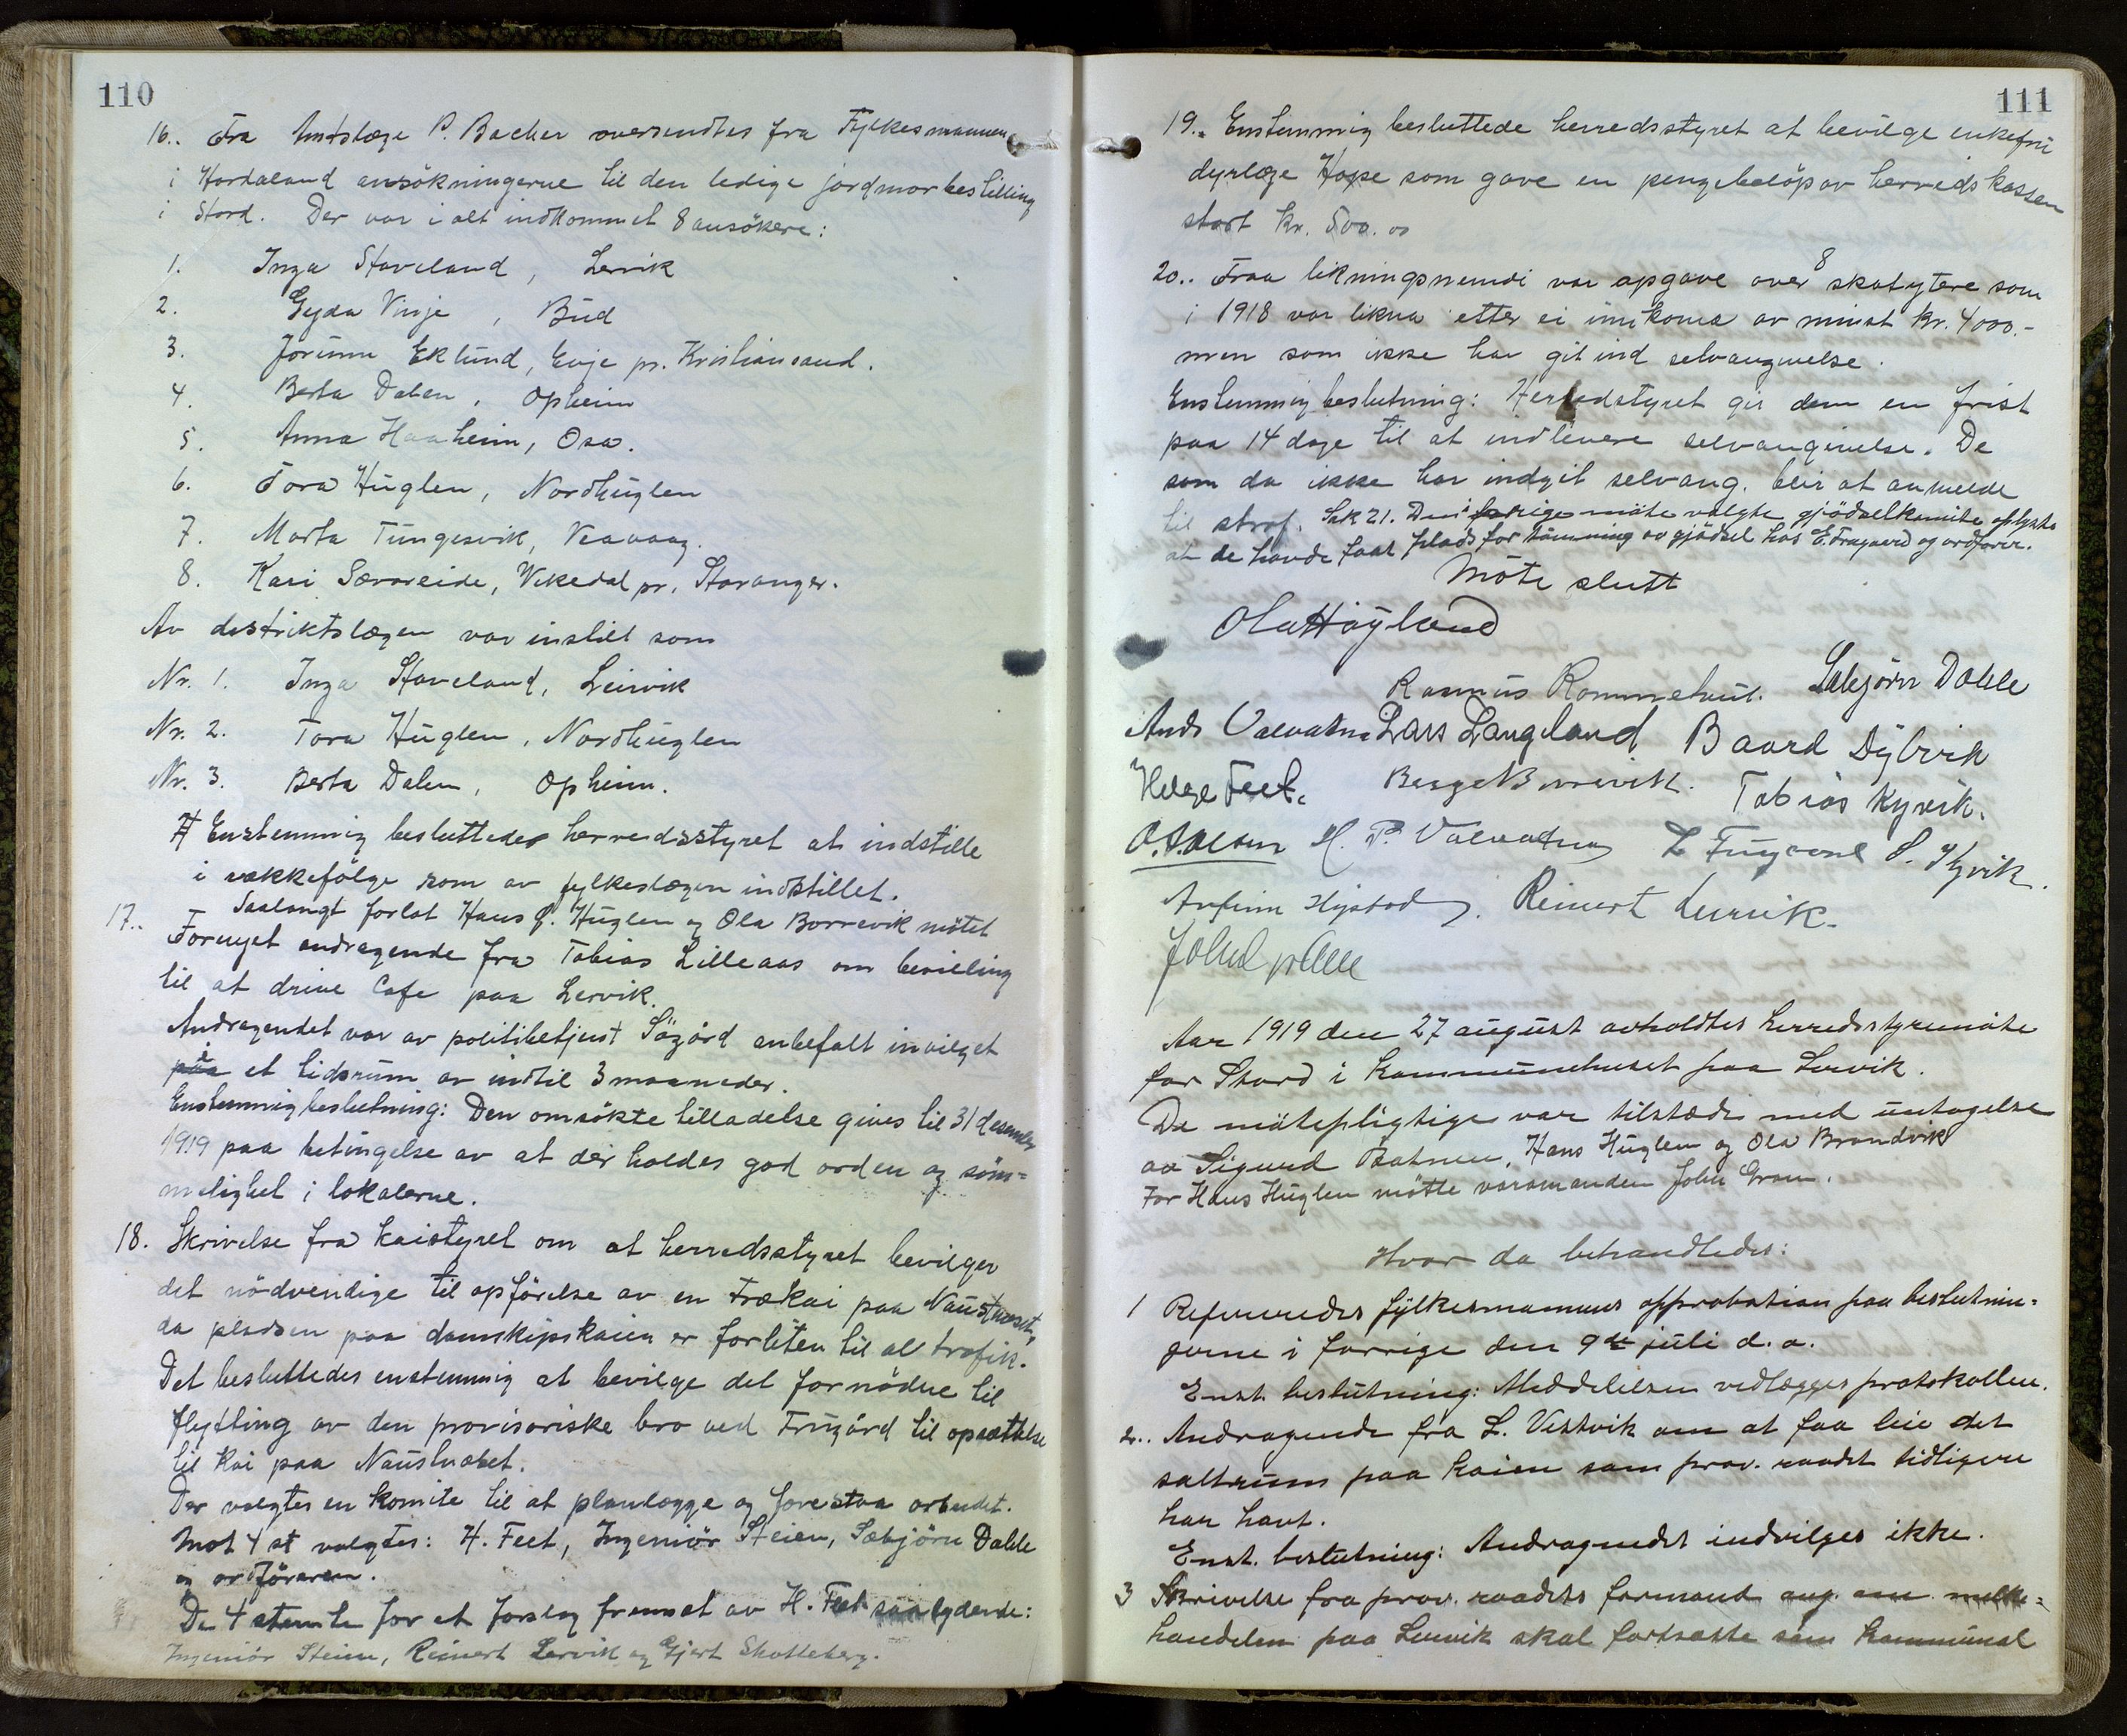 110
16.. Fra Amtslæge P. Backer oversendtes fra Fylkesmannen
i Hordaland ansökningerne til den ledige jordmorbestilling
i Stord. Der var i alt indkommet 8 ansökere:
1. Inga Staveland, Lervik
2. Gyda Vinje, Bud
3. Jorunn Eklund, Evje pr. Kristiansand.
4. Berta Dalen, Opheim
5. Anna Haaheim, Osa.
6. Tora Huglen, Nordhuglen
7. Marta Tungesvik, Veavaag.
8. Kari Særvareide, Vikedal pr. Stavanger.
Av distriktslægen var instilt som
Nr. 1. Inga Staveland, Leirvik
Nr. 2. Tora Huglen, Nordhuglen
Nr. 3. Berta Dalen, Opheim.
Enstemmig besluttedes herredsstyret at indstille
i rækkefölge som av fylkeslægen indstillet.
Saalangt forlot Hans Huglen og Ola Borrevik mötet
17.. Fornyet andragende fra Tobias Lilleaas om bevilling
til at drive Cafe paa Lervik.
Andragendet var av politibetjent Sögård anbefalt invilget
paa et tidsrum av indtil 3 maaneder.
Enstemmig beslutning: Den omsökte tilladelse gives til 31 desember
1919 paa betingelse av at der holdes god orden og söm=
melighet i lokalerne.
18. Skrivelse fra kaistyret om at herredsstyret bevilger
det nödvendige til opförelse av en Trækai paa Naustneset,
da pladsen paa damskipskaien er forliten til al trafik.
Det besluttedes enstemmig at bevilge det fornödne til
flytting av den provisoriske bro ved Frugård til opsættelse
til kai paa Naustneset.
Der valgtes en komite til at planlægge og forestaa arbeidet.
Mot 4 st valgtes: H. Feet, Ingeniör Steien, Sæbjörn Dahle
og ordföreren.
De 4 stemte for et forslag fremsat av H. Feet saalydende:
Ingeniör Steien, Reinert Lervik og Gjert Skotteberg.
111
19.. Enstemmig besluttede herredsstyret at bevilge enkefru
dyrlæge Hope som gave en pengebelöp av herredskassen
stort kr. 500.00
20.. Fraa likningsnemdi var opgave over 8 skatytere som
i 1918 var likna etter ei innkoma av minst kr. 4000.-
men som ikke har git ind selvangivelse.
Enstemmig beslutning: Herredstyret gir dem en frist
paa 14 dage til at indlevere selvangivelse. De
som da ikke har indgit selvang. blir at anmelde
til straf. Sak 21. Den i forrige möte valgte gjödselkomite oplyste
at de havde faat plads for tömming av gjödsel hos E. Frugaard og ordförer.
Möte slutt
Ola Höyland
Rasmus Rommetveit. Sæbjörn Dahle
Ands Valvatne Lars Langeland Baard Dybvik
Helge Feet. Berge Borrevik. Tobias Kyvik.
O. A. Olsen H. P. Valvatne L Frugaard S. Kyvik.
Anfinn Hystad. Reinert Lervik.
Aar 1919 den 27 august avholdtes herredsstyremöte
for Stord i kommunehuset paa Lervik.
De mötepligtige var tilstæde med untagelse
av Sigurd Botnen, Hans Huglen og Ola Brandvik
For Hans Huglen mötte varamanden John Gram.
Hvor da behandledes:
1 Refereredes fylkesmannens approbation paa beslutnin=
gerne i forrige den 9de juli d.a.
Enst. beslutning: Meddelelsen vedlægges protokollen.
2.. Andragende fra L. Vestvik om at faa leie det
saltrum paa kaien som prov. raadet tidligere
har havt.
Enst. beslutning: Andragendet indvilges ikke.
3 Skrivelse fra prov. raadets formand ang. om melke=
handelen paa Leirvik skal fortsætte som kommunal